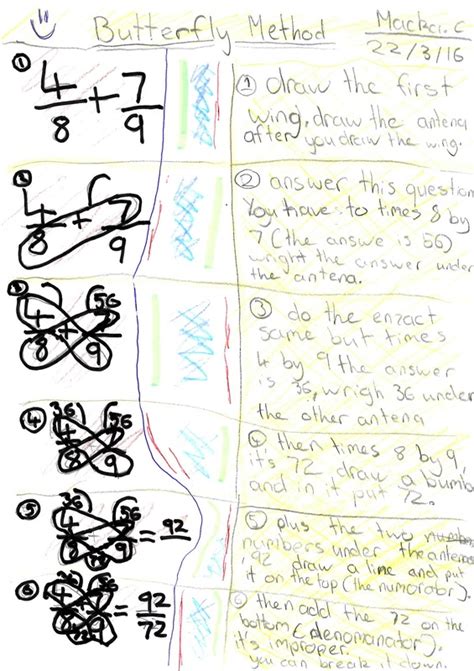 Butterfly Method
22/3/16
①
4/8 + 7/9
① draw the first
wing, draw the antena
after you draw the wing.
②
4/8 + 7/9
② answer this question
You have to times 8 by
7 (the answe is 56)
wright the answer under
the antena.
③
56
4/8 + 7/9
③ do the enzact
same but times
4 by 9 the answer
is 36, wrigh 36 under
the other antena
④
36 56
4/8 + 7/9
④ then times 8 by 9,
it's 72 draw a bumb
and in it put 72.
⑤
36 56
4/8 + 7/9 = 92
72
⑤ plus the two number
numbers under the antenas
, 92 draw a line and put
it on the top (the numorator).
⑥
36 56
4/8 + 7/9 = 92/72
72
⑥ then add the 72 on the
bottom (denomanator).
it's improper.
you can break it down.